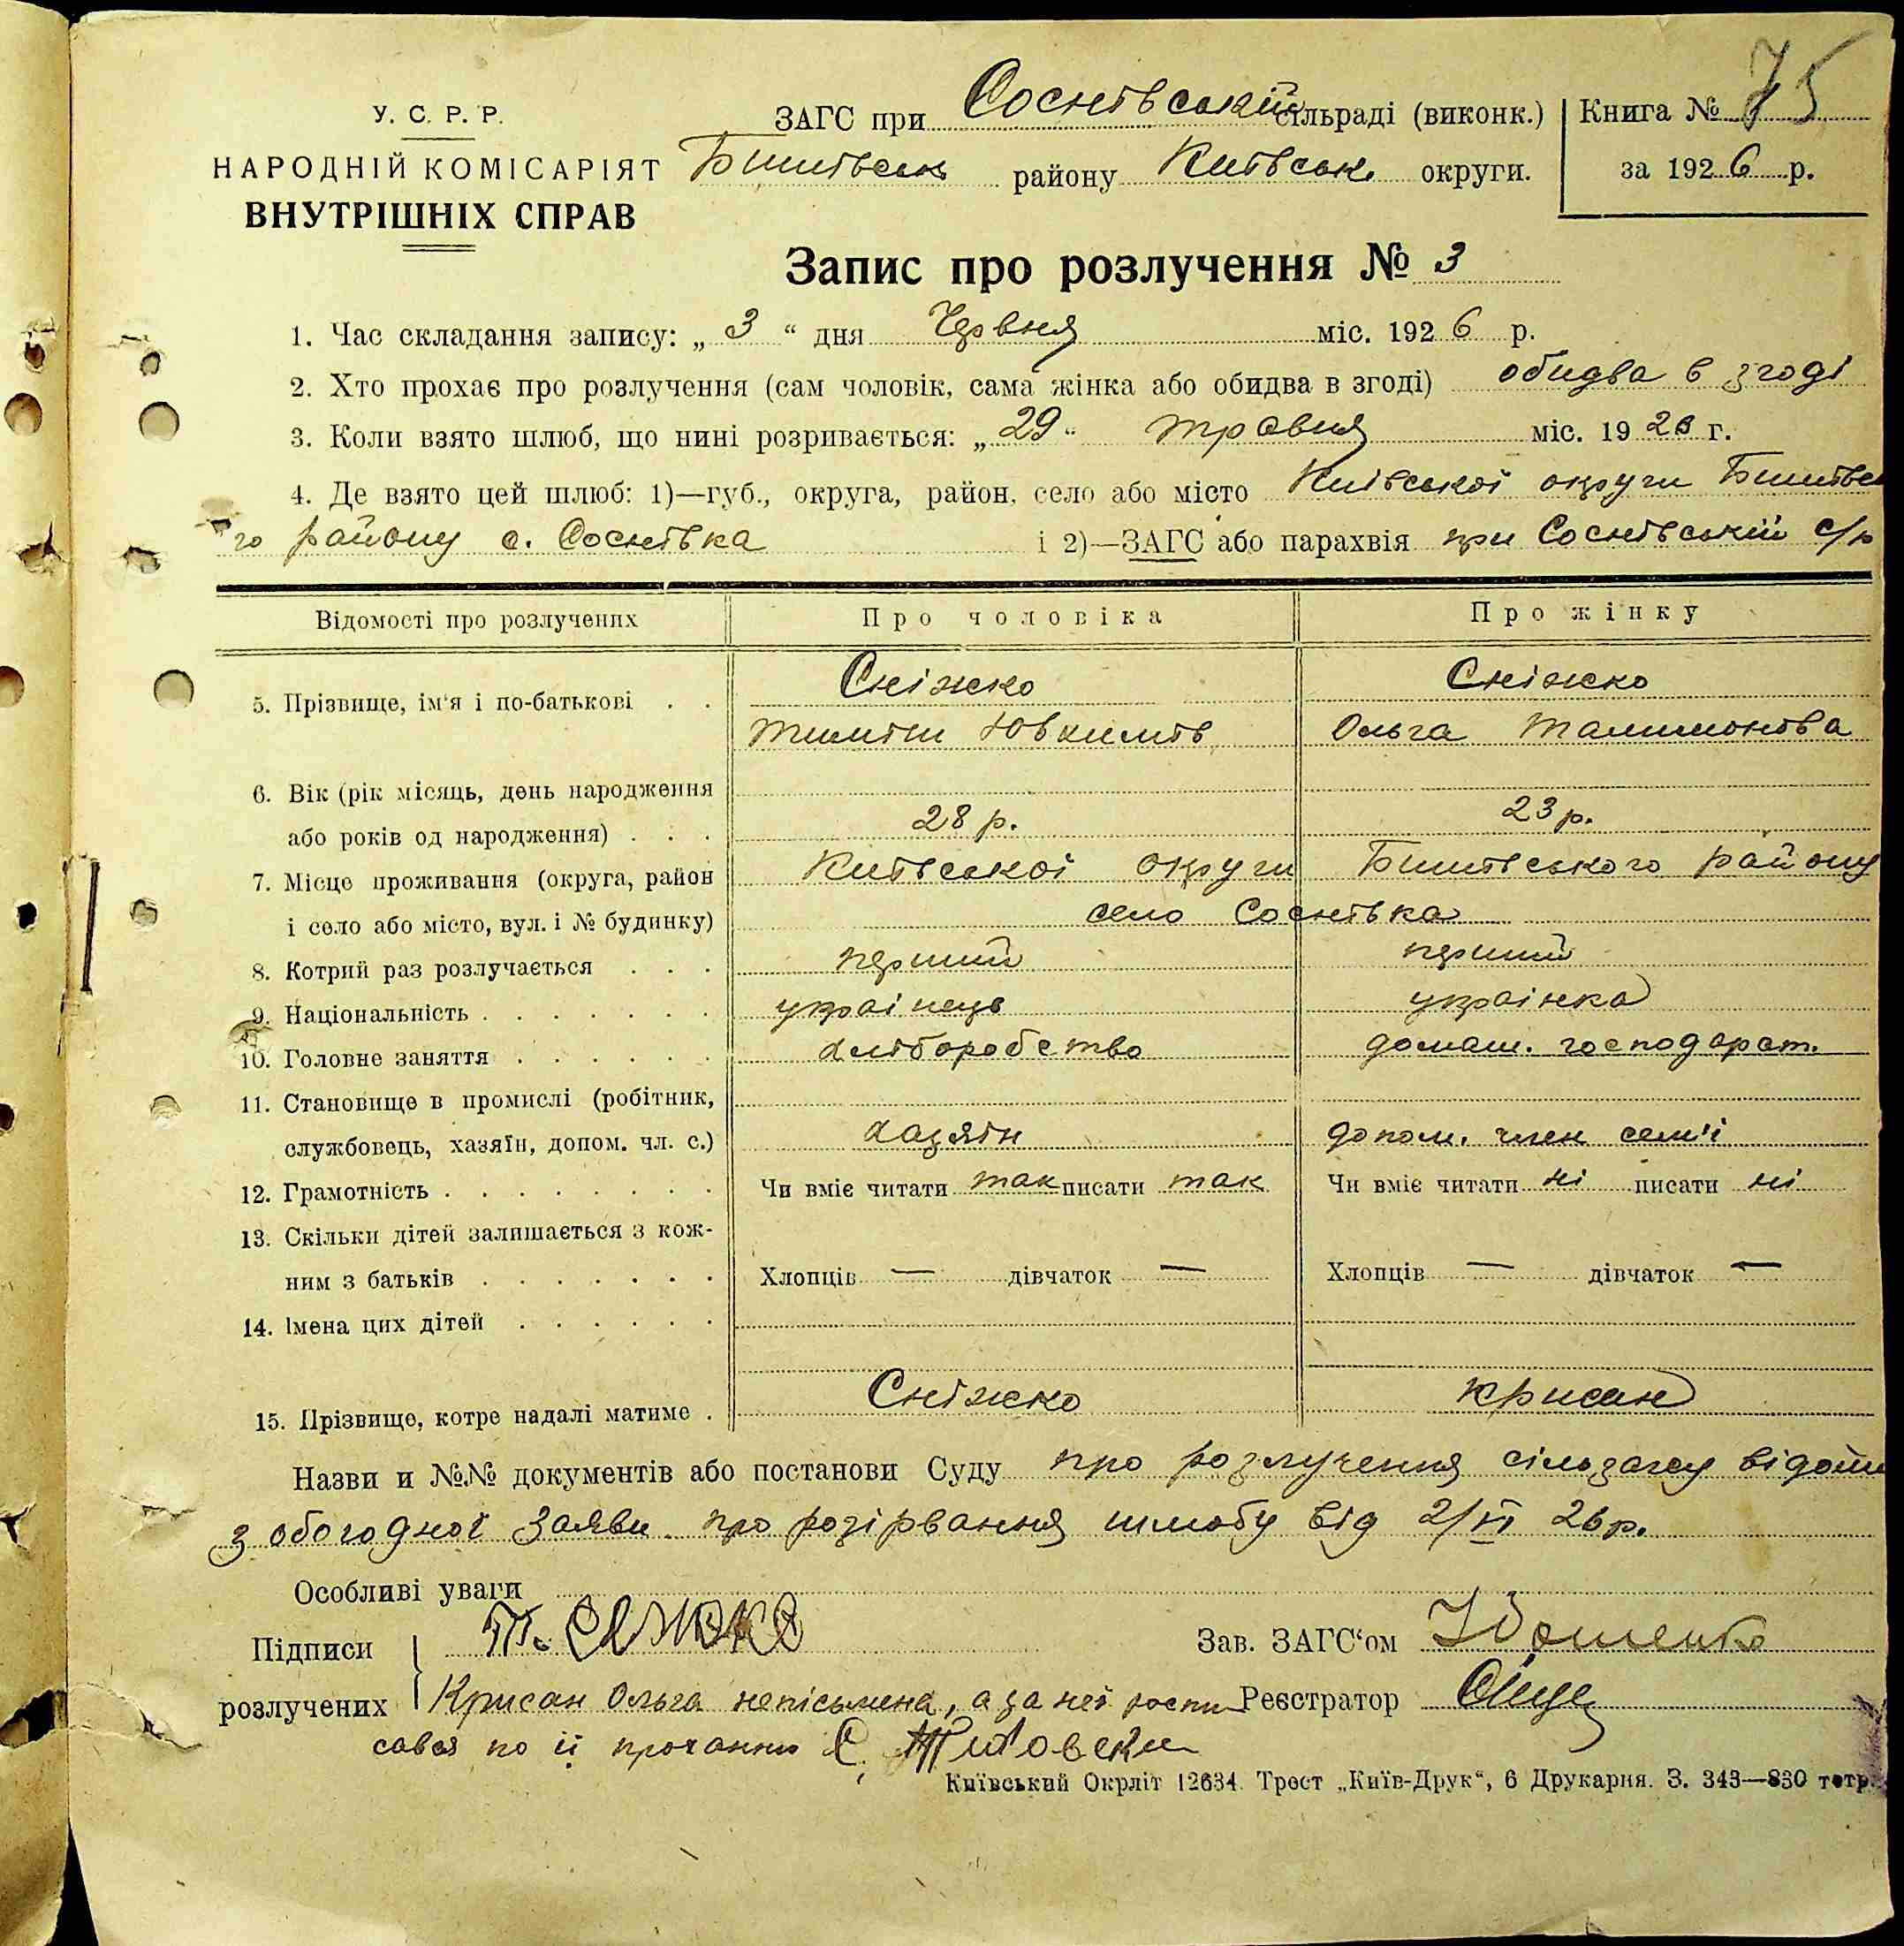 У. С. Р. Р.
НАРОДНІЙ КОМІСАРІЯТ
ВНУТРІШНІХ СПРАВ
ЗАГС при Соснівський сільраді (виконк.)
Бишівськ району Київськ. округи.
Книга № 75
за 1926 р.
Запис про розлучення № 3
1. Час складання запису: „ 3 “ дня Червня міс. 1926 р.
2. Хто прохає про розлучення (сам чоловік, сама жінка або обидва в згоді) обидва в згоді
3. Коли взято шлюб, що нині розривається: „ 29 “ травня міс. 19 г.
4. Де взято цей шлюб: 1)—губ., округа, район, село або місто Київської округи Бишівсь
го району с. Соснівка і 2)—ЗАГС або парахвія при Соснівській с/р
Відомості про розлучених Про чоловіка Про жінку
5. Прізвище, ім'я і по-батькові . . Сніжко Сніжко
Ольга
6. Вік (рік місяць, день народження
або років од народження) . . . 28 р. 23 р.
7. Місце проживання (округа, район Київської округи Бишівського району
і село або місто, вул. і № будинку) село Соснівка
8. Котрий раз розлучається . . . перший перший
9. Національність . . . . . . . українець українка
10. Головне заняття . . . . . . хліборобство домаш. господарст.
11. Становище в промислі (робітник,
службовець, хазяїн, допом. чл. с.) хазяїн допом. член сем'ї
12. Грамотність . . . . . . . . Чи вміє читати так писати так Чи вміє читати ні писати ні
13. Скільки дітей залишається з кож-
ним з батьків . . . . . . . Хлопців — дівчаток — Хлопців — дівчаток —
14. Імена цих дітей . . . . . .
15. Прізвище, котре надалі матиме . Сніжко Крисан
Назви и №№ документів або постанови Суду про розлучення сільзагсу
з обогодної заяви про розірвання шлюбу від 2/VI 26 р.
Особливі уваги
Підписи Т. Зав. ЗАГС‘ом
розлучених Крисан Ольга неписьмена, а за неї роспи Реєстратор
савсь по її проханню С.
Київський Окрліт 12634. Трест „Київ-Друк“, 6 Друкарня. З. 343—830 тетр.